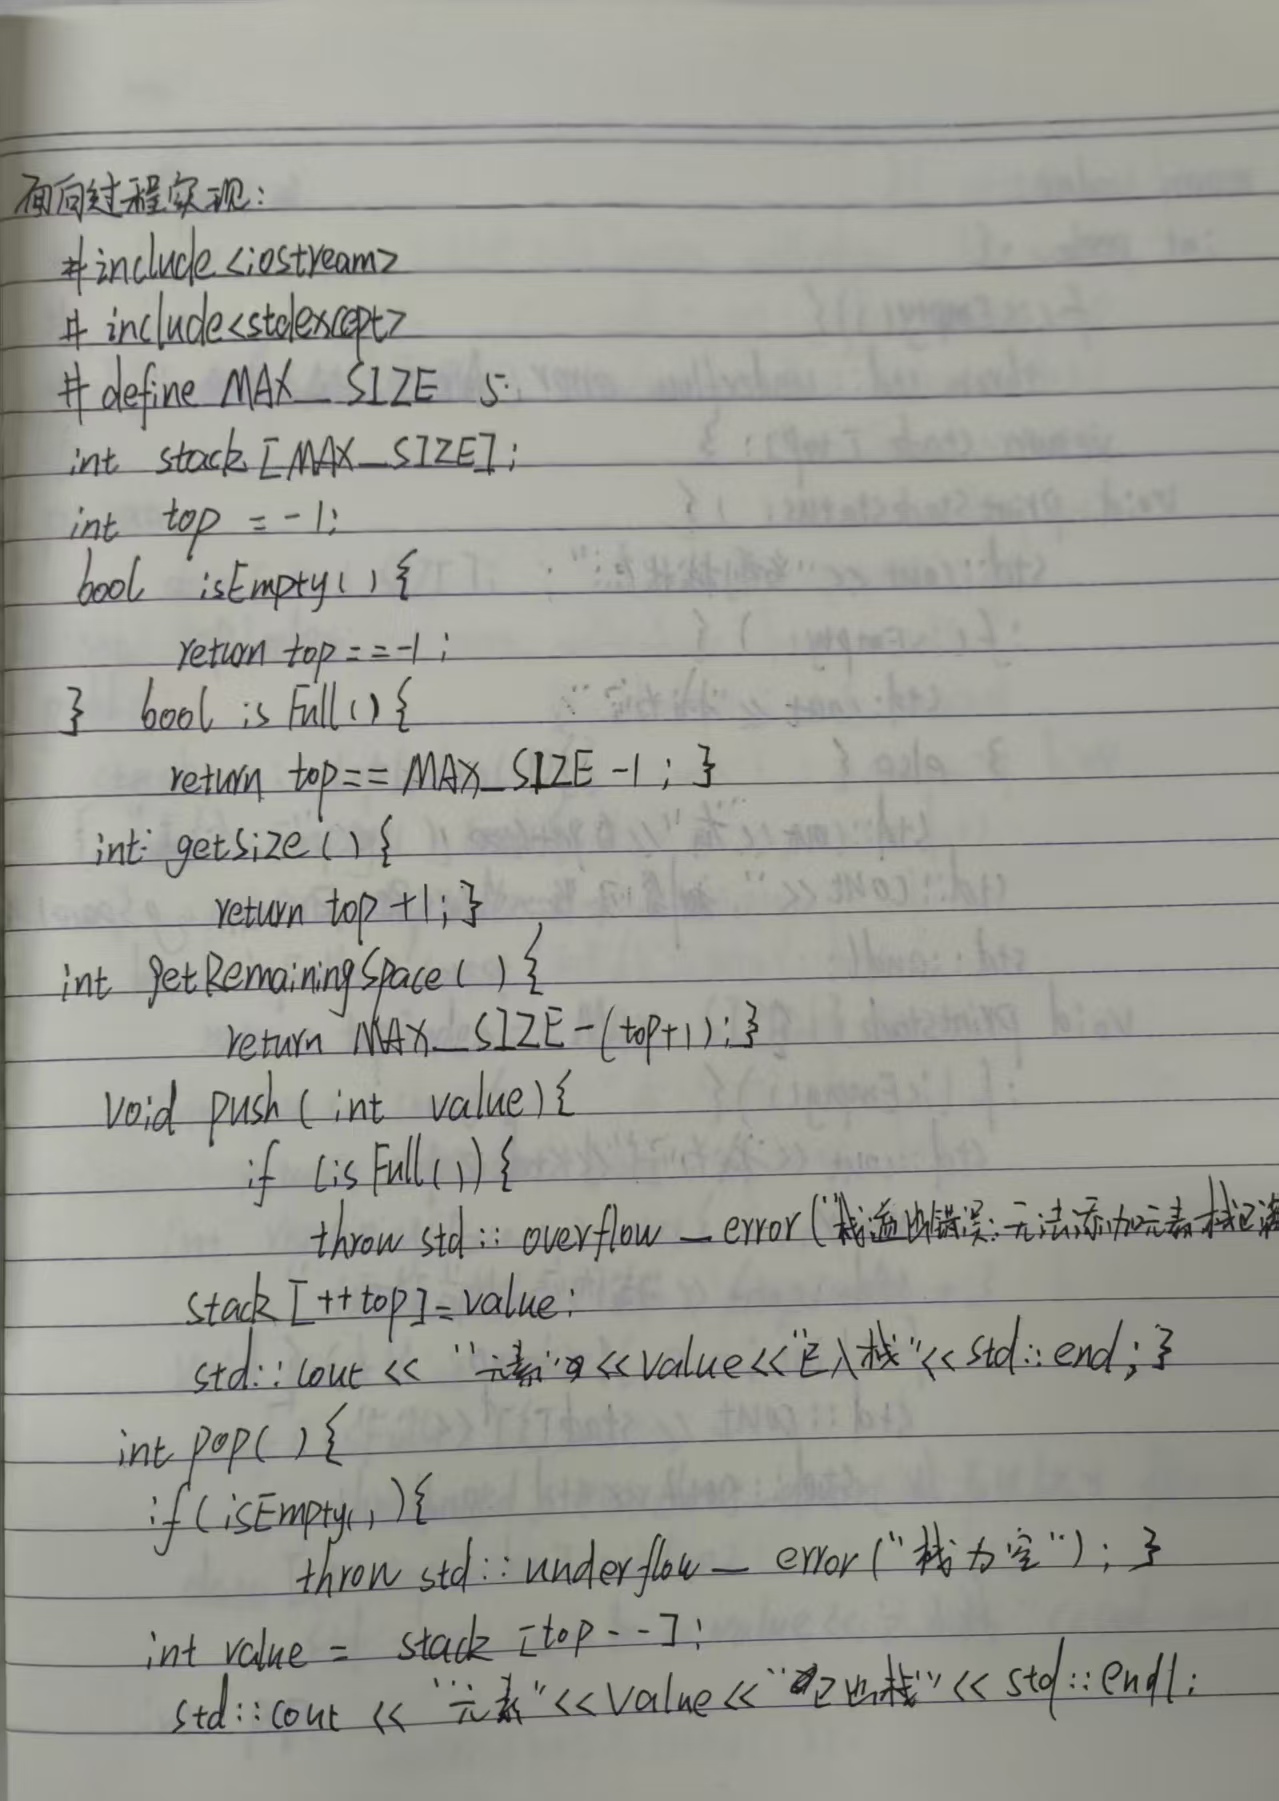 面向过程实现:
#include<iostream>
# include<stdexcept>
# define MAX_SIZE 5
int stack[MAX_SIZE];
int top = -1;
bool isEmpty(){
return top==-1;
} bool isFull(){
return top==MAX_SIZE-1;}
int getSize(){
return top+1;}
int getRemainingSpace(){
return MAX_SIZE-(top+1);}
void push(int value){
if (isFull()){
throw std::overflow_error("栈溢出错误:无法添加元素,栈已满
stack[++top]=value;
std::cout << "元素"<<value<<"已入栈"<<std::end;}
int pop(){
if(isEmpty()){
throw std::underflow_error("栈为空");}
int value = stack[top--];
std::cout << "元素"<<value<<"已出栈"<<std::endl;